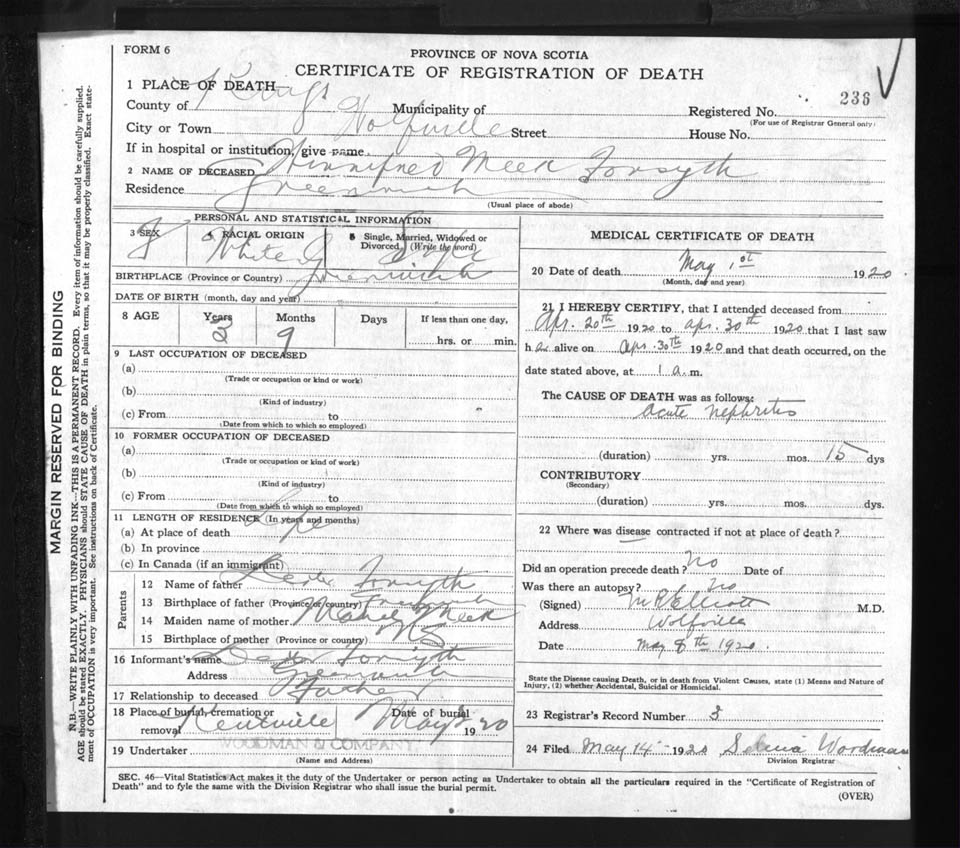 FORM 6
PROVINCE OF NOVA SCOTIA
CERTIFICATE OF REGISTRATION OF DEATH
236
1 PLACE OF DEATH
County of Kings Municipality of Registered No.
(For use of Registrar General only)
City or Town Wolfville Street House No.
If in hospital or institution, give name
2 NAME OF DECEASED Winnifred Meek Forsyth
Residence Greenwich
(Usual place of abode)
PERSONAL AND STATISTICAL INFORMATION
3 SEX F 4 RACIAL ORIGIN White 5 Single, Married, Widowed or Divorced (Write the word) Single
BIRTHPLACE (Province or Country) Greenwich
DATE OF BIRTH (month, day and year)
8 AGE Years 3 Months 9 Days If less than one day, hrs. or min.
9 LAST OCCUPATION OF DECEASED
(a)
(Trade or occupation or kind or work)
(b)
(Kind of industry)
(c) From to
(Date from which to which so employed)
10 FORMER OCCUPATION OF DECEASED
(a)
(Trade or occupation or kind or work)
(b)
(Kind of industry)
(c) From to
(Date from which to which so employed)
11 LENGTH OF RESIDENCE (In years and months)
(a) At place of death Life
(b) In province
(c) In Canada (if an immigrant)
Parents
12 Name of father Forsyth
13 Birthplace of father (Province or country) Greenwich
14 Maiden name of mother Meek
15 Birthplace of mother (Province or country) NS
16 Informant's name Forsyth
Address Greenwich
17 Relationship to deceased Father
18 Place of burial, cremation or removal Kentville Date of burial May 2 1920
WOODMAN & COMPANY
19 Undertaker
(Name and Address)
MEDICAL CERTIFICATE OF DEATH
20 Date of death May 1st 1920
(Month, day and year)
21 I HEREBY CERTIFY, that I attended deceased from
Apr. 20th 1920 to Apr. 30th 1920 that I last saw
h er alive on Apr. 30th 1920 and that death occurred, on the
date stated above, at 1 a.m.
The CAUSE OF DEATH was as follows:
Acute nephritis
(duration) yrs. mos. 15 dys
CONTRIBUTORY
(Secondary)
(duration) yrs. mos. dys.
22 Where was disease contracted if not at place of death?
Did an operation precede death? No Date of
Was there an autopsy? No
(Signed) M R Elliott M.D.
Address Wolfville
Date May 8th 1920.
State the Disease causing Death, or in death from Violent Causes, state (1) Means and Nature of
Injury, (2) whether Accidental, Suicidal or Homicidal.
23 Registrar's Record Number 3
24 Filed May 14 1920 Selina Woodman
Division Registrar
SEC. 46—Vital Statistics Act makes it the duty of the Undertaker or person acting as Undertaker to obtain all the particulars required in the "Certificate of Registration of
Death" and to fyle the same with the Division Registrar who shall issue the burial permit.
(OVER)
MARGIN RESERVED FOR BINDING
N.B.—WRITE PLAINLY WITH UNFADING INK—THIS IS A PERMANENT RECORD. Every item of information should be carefully supplied.
AGE should be stated EXACTLY. PHYSICIANS should STATE CAUSE OF DEATH in plain terms, so that it may be properly classified. Exact state-
ment of OCCUPATION is very important. See instructions on back of Certificate.